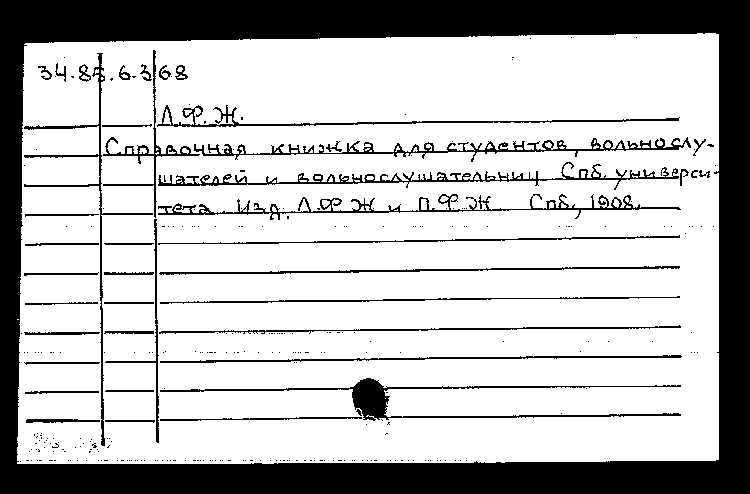 34.85.6.368
Л.Ф.Ж.
Справочная книжка для студентов, вольнослу-
шателей и вольнослушательниц Спб. универси-
тета. Изд. Л.Ф.Ж и П.Ф.Ж Спб., 1908.